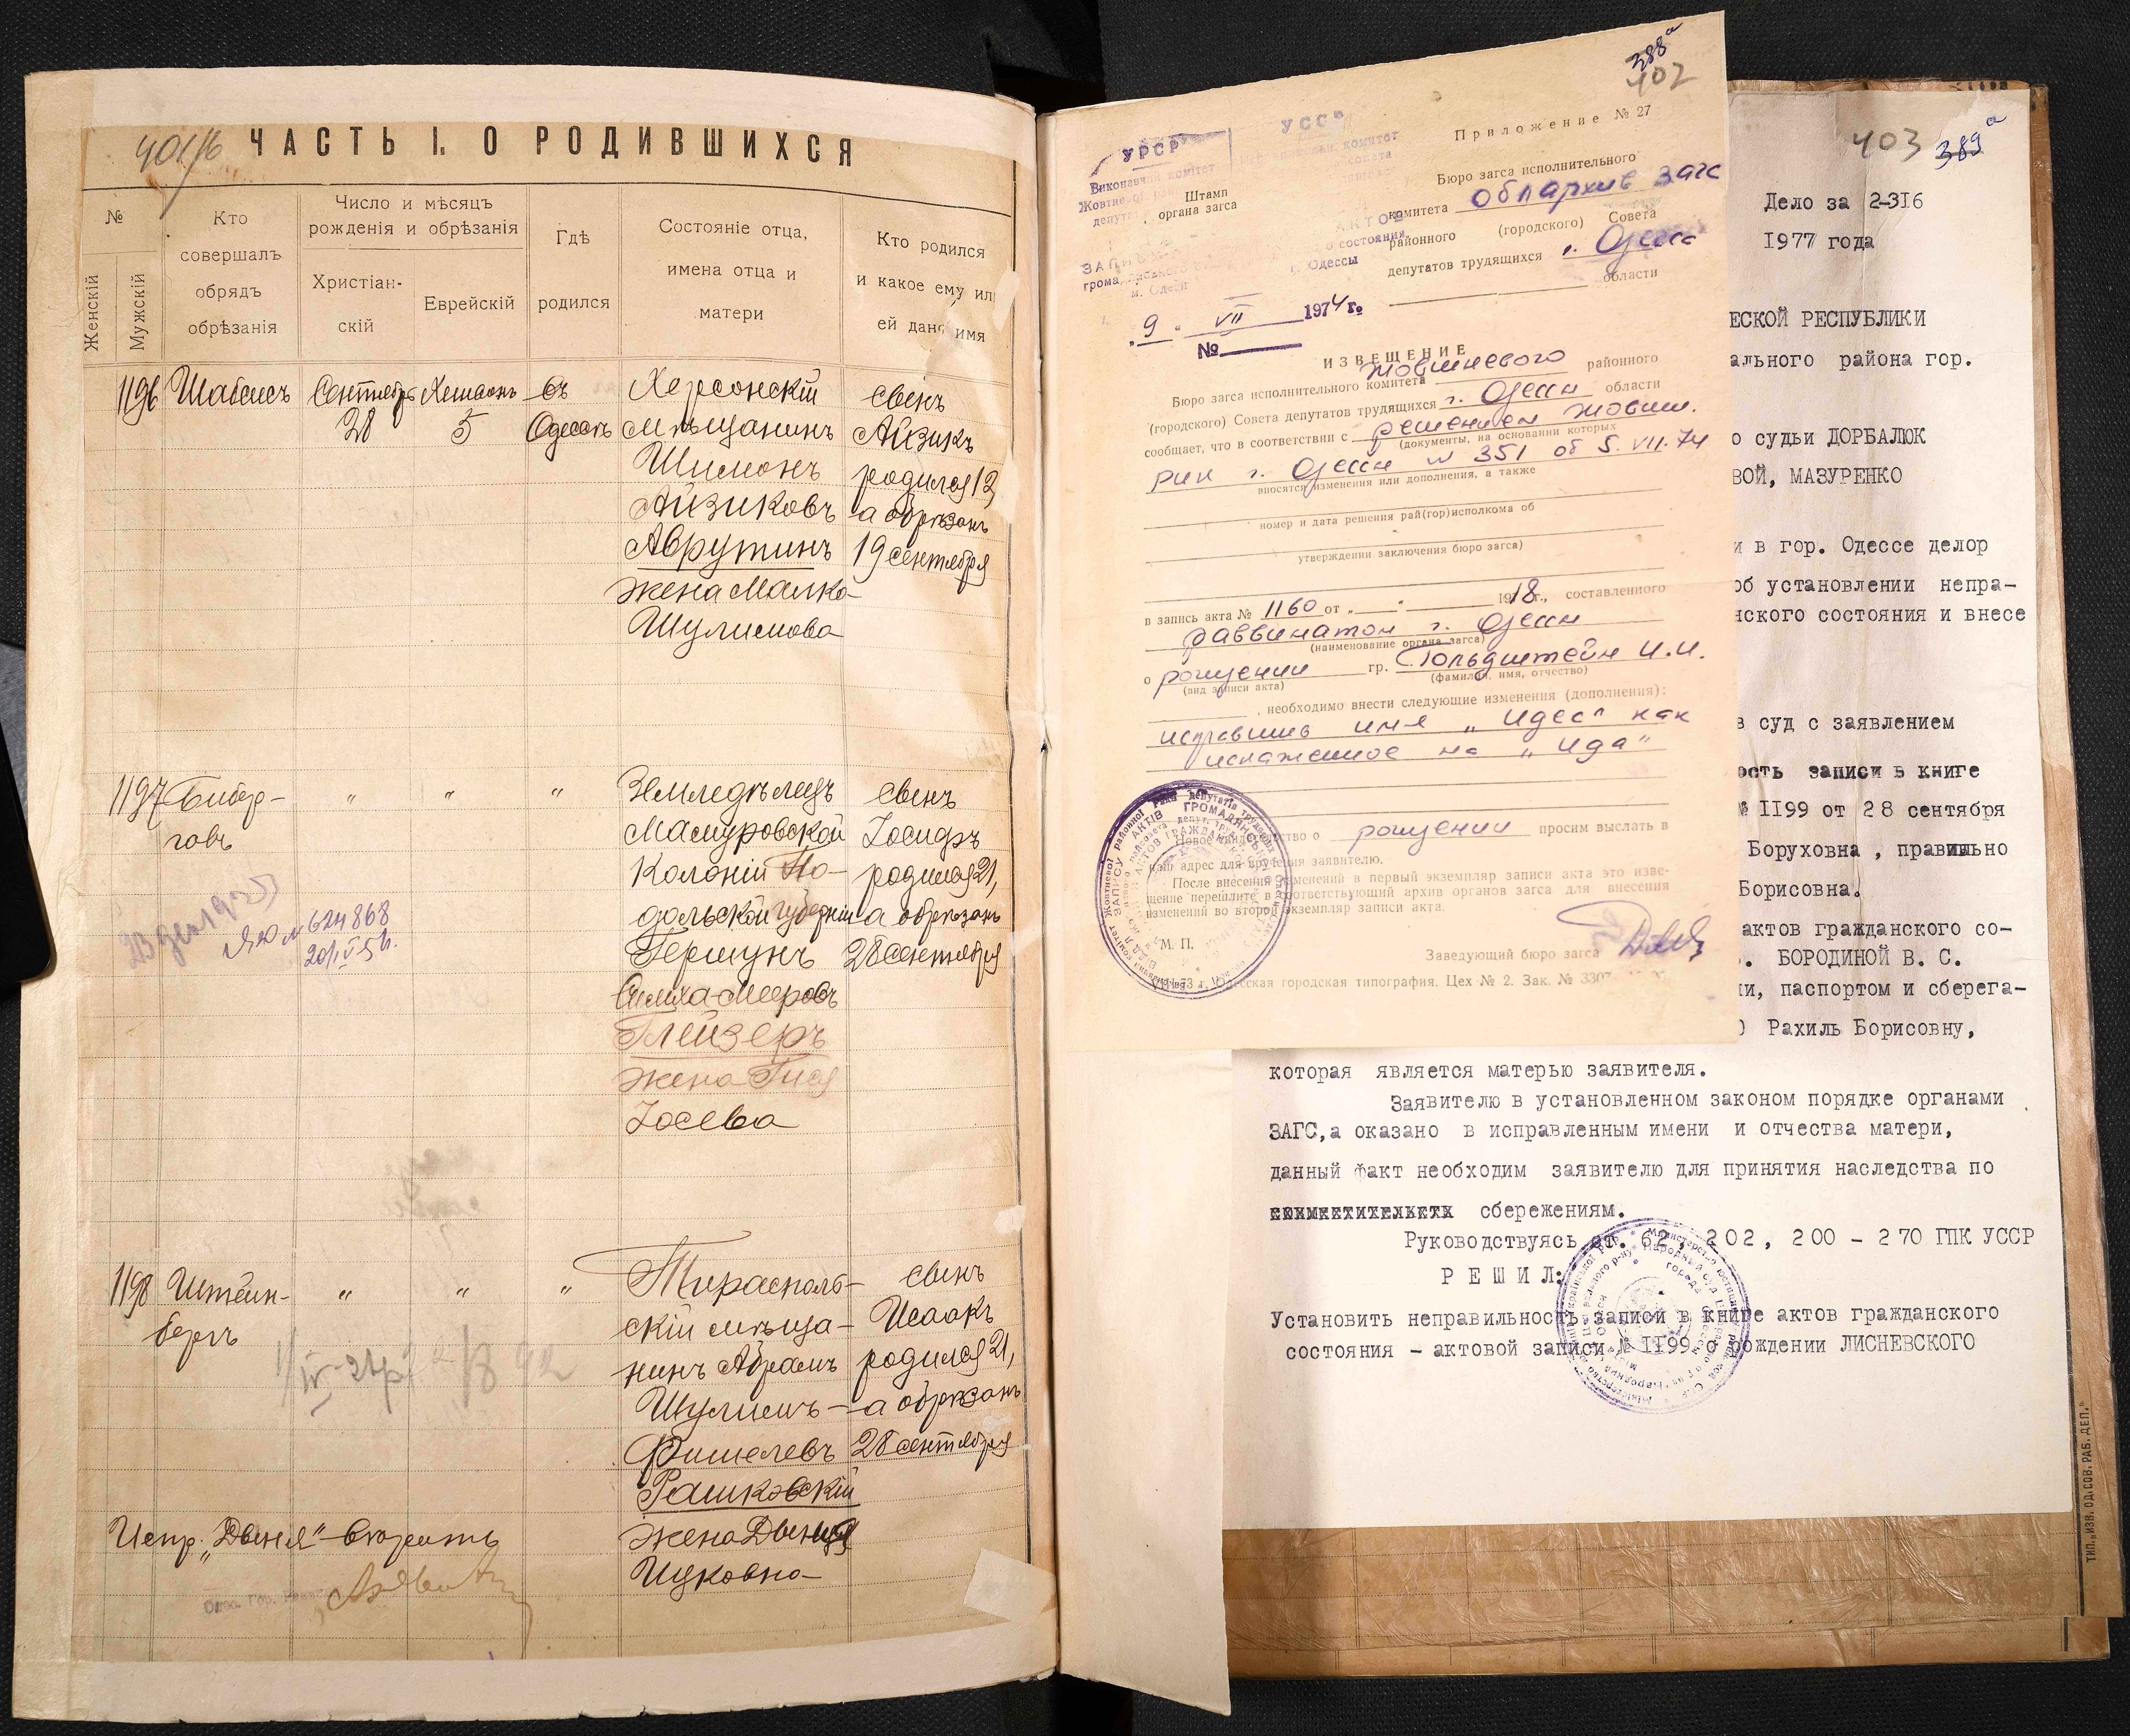 401/б
ЧАСТЬ I. О РОДИВШИХСЯ
№
Женскій
Мужскій
Кто
совершалъ
обрядъ
обрѣзанія
Число и мѣсяцъ
рожденія и обрѣзанія
Христіан-
скій
Еврейскій
Гдѣ
родился
Состояніе отца,
имена отца и
матери
Кто родился
и какое ему ил
ей дано имя
1196
Шабасъ
Сентябрь
28
Хешванъ
5
Въ
Одессѣ
Херсонскій
мѣщанинъ
Шимонъ
Айзиковъ
Аврутинъ
жена Малка
Шулимова
сынъ
Айзикъ
родился 12,
а обрѣзанъ
19 сентября
1197
Бибер-
говъ
"
"
"
Земледѣлецъ
Колоніи По-
дольской губерніи
Гершунъ
Симха-Мееровъ
Глейзеръ
жена Гися
Іосева
сынъ
Іосифъ
родился 21,
а обрѣзанъ
28 сентября
ЯЮ № 624868
1198
Штейн-
бергъ
"
"
"
Тирасполь-
скій мѣща-
нинъ Абрамъ
Шулимъ-
Фишелевъ
Рашковскій
жена Двейня
Ицковна
сынъ
Исаакъ
родился 21,
а обрѣзанъ
28 сентября
Испр. „Двейня"
388а
402
УРСР
Виконавчий комітет
УССР
Приложение № 27
Штамп
органа загса
Бюро загса исполнительного
комитета Облархив загс
районного (городского) Совета
депутатов трудящихся г. Одесса
области
г. Одессы
„9" VII 1974 г.
№
ИЗВЕЩЕНИЕ
Бюро загса исполнительного комитета Жовтневого районного
(городского) Совета депутатов трудящихся г. Одессы области
сообщает, что в соответствии с решением Жовтн.
(документы, на основании которых
рик г. Одессы № 351 от 5.VII.74
вносятся изменения или дополнения, а также
номер и дата решения рай(гор)исполкома об
утверждении заключения бюро загса)
в запись акта № 1160 от „ " 1918 г., составленного
раввинатом г. Одессы
(наименование органа загса)
о рождении гр. Гольдштейн И.И.
(вид записи акта) (фамилия, имя, отчество)
, необходимо внести следующие изменения (дополнения):
исправить имя „Идес" как
искаженное на „Ида"
Новое свидетельство о рождении просим выслать в
наш адрес для вручения заявителю.
После внесения изменений в первый экземпляр записи акта это изве-
щение перешлите в соответствующий архив органов загса для внесения
изменений во второй экземпляр записи акта.
М. П.
Заведующий бюро загса
Одесская городская типография. Цех № 2. Зак. №
403 389а
Дело за 2-316
1977 года
ЕСКОЙ РЕСПУБЛИКИ
ального района гор.
о судьи ДОРБАЛЮК
ВОЙ, МАЗУРЕНКО
и в гор. Одессе делор
об установлении непра-
нского состояния и внесе
в суд с заявлением
ость записи в книге
№ II99 от 28 сентября
Боруховна , правильно
Борисовна.
актов гражданского со-
. БОРОДИНОЙ В. С.
ии, паспортом и сберега-
Рахиль Борисовну,
которая является матерью заявителя.
Заявителю в установленном законом порядке органами
ЗАГС,а оказано в исправленным имени и отчества матери,
данный факт необходим заявителю для принятия наследства по
сбережениям.
Руководствуясь ст. 62, 202, 200 - 270 ГПК УССР
РЕШИЛ:
Установить неправильность записи в книге актов гражданского
состояния - актовой записи № II99 о рождении ЛИСНЕВСКОГО
ТИП. „ИЗВ. ОД. СОВ. РАБ. ДЕП."